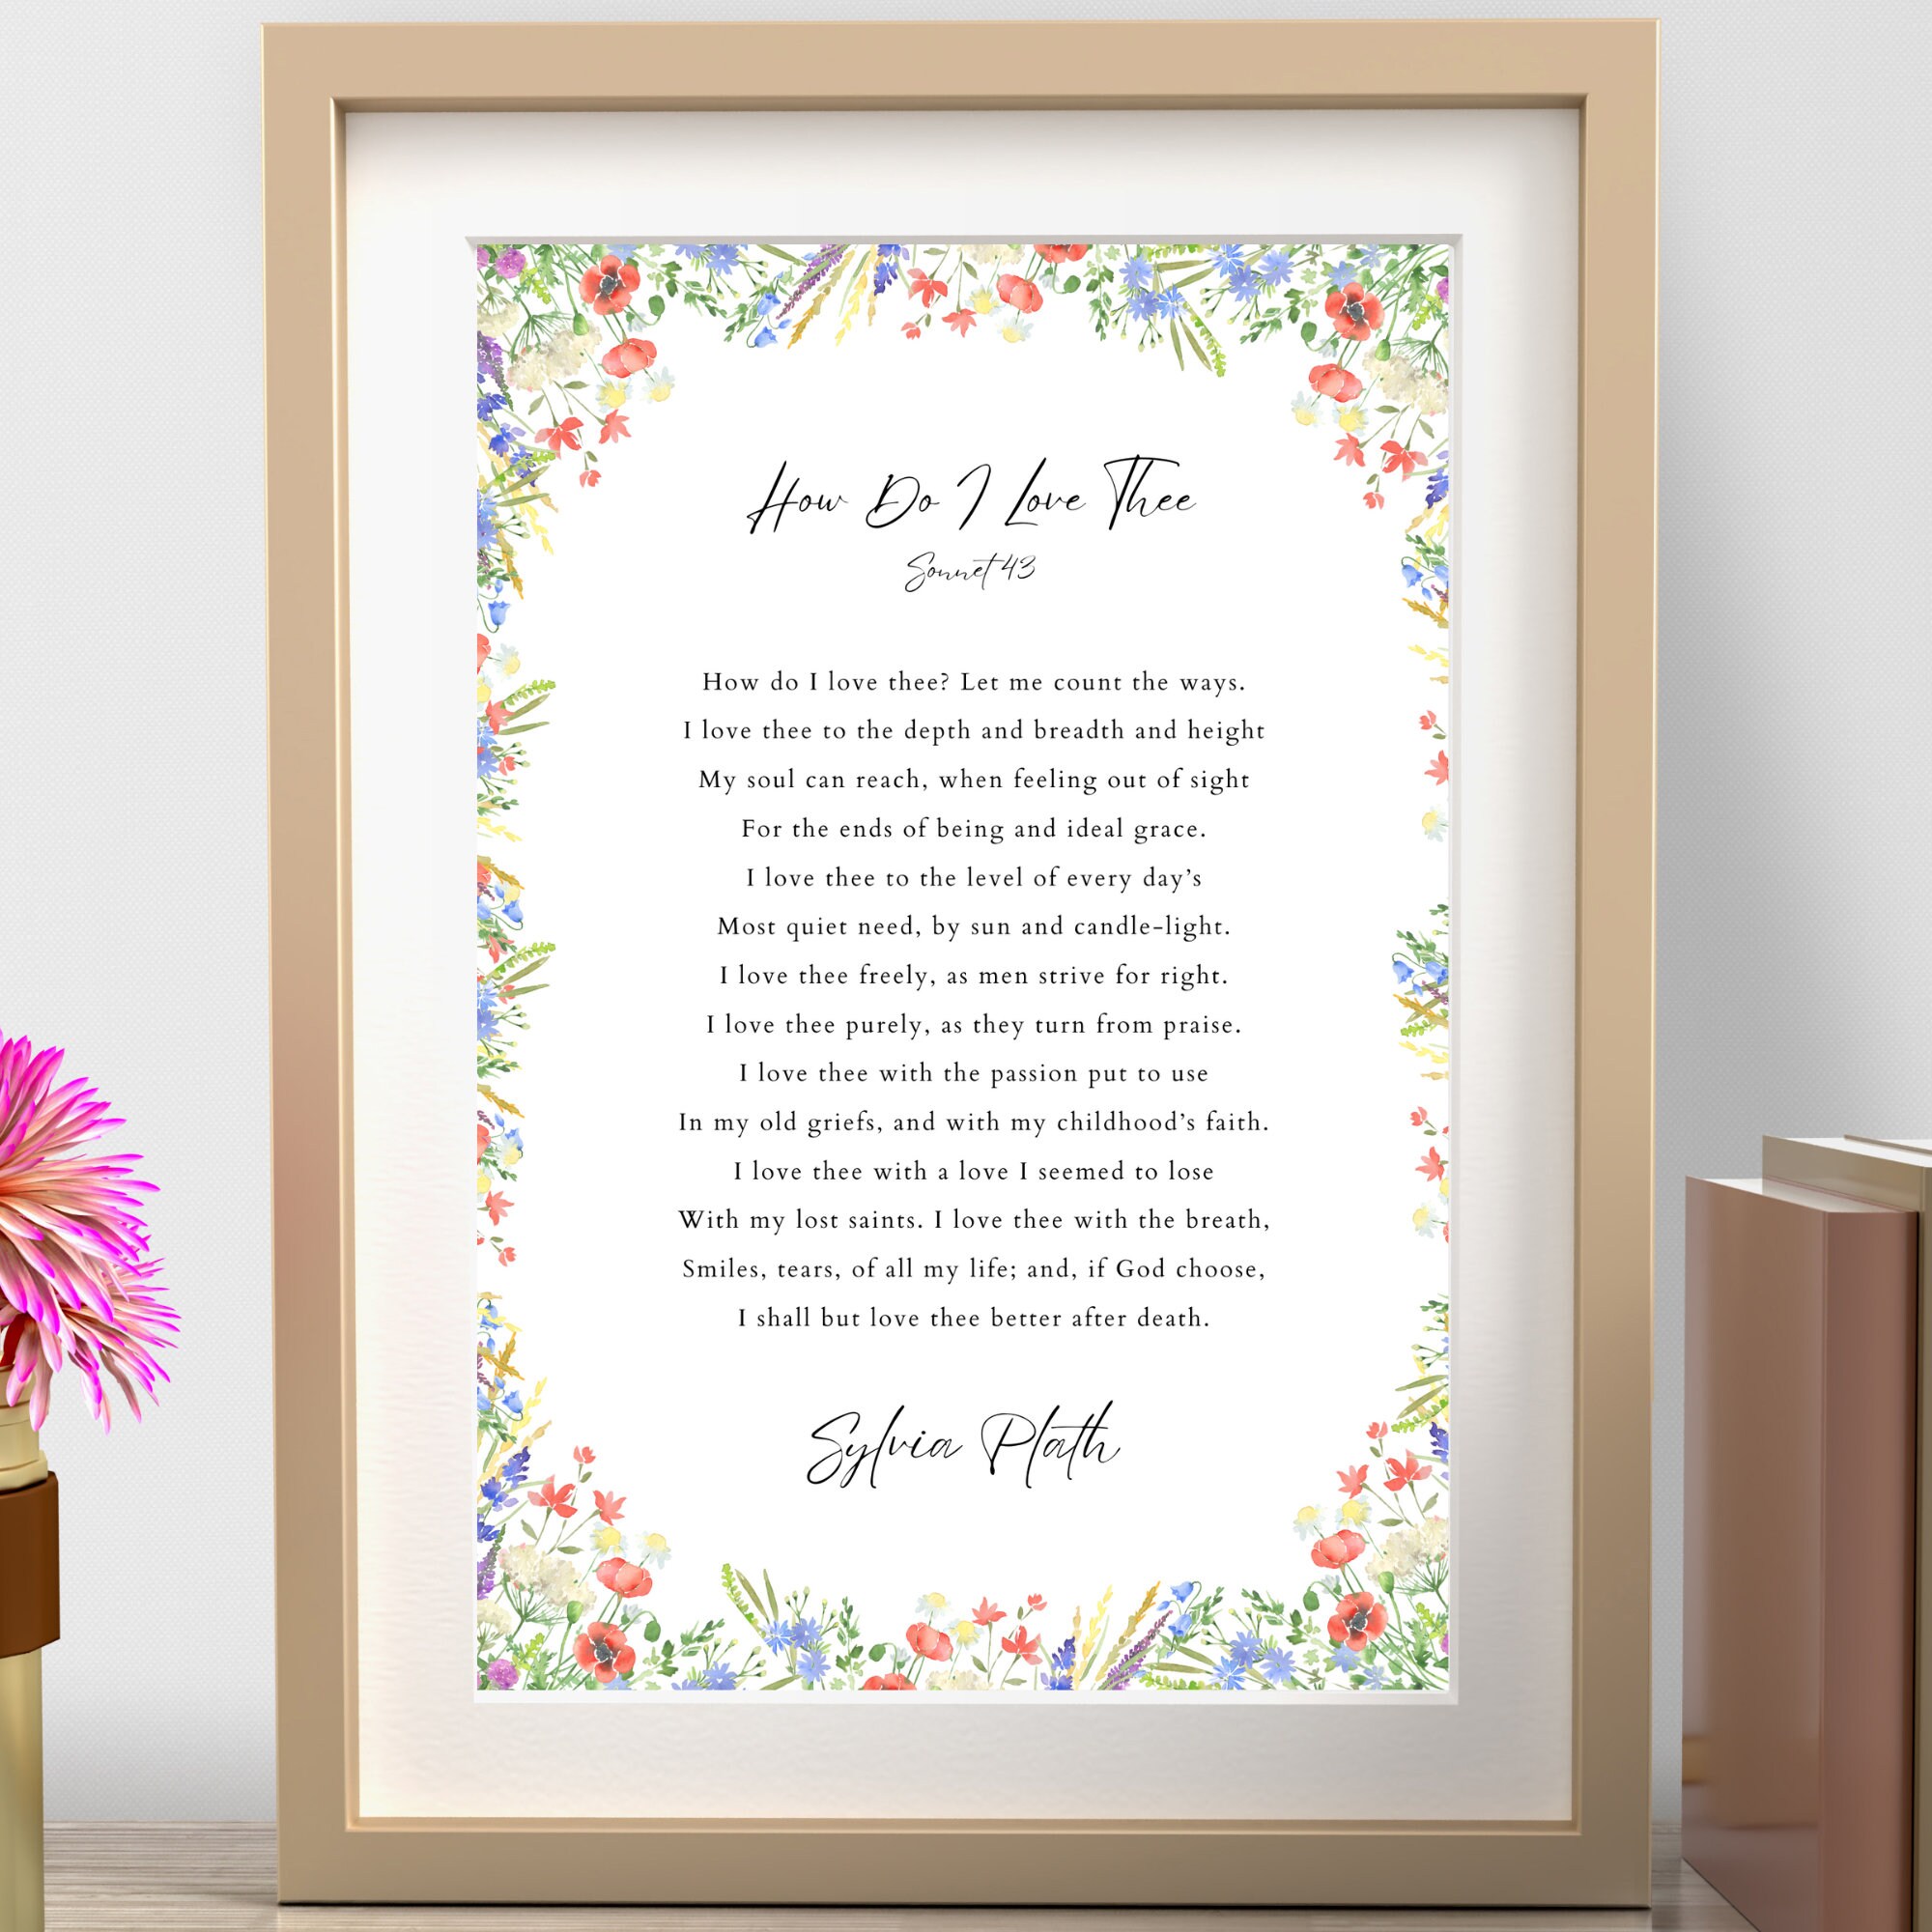 How Do I Love Thee
Sonnet 43
How do I love thee? Let me count the ways.
I love thee to the depth and breadth and height
My soul can reach, when feeling out of sight
For the ends of being and ideal grace.
I love thee to the level of every day’s
Most quiet need, by sun and candle-light.
I love thee freely, as men strive for right.
I love thee purely, as they turn from praise.
I love thee with the passion put to use
In my old griefs, and with my childhood’s faith.
I love thee with a love I seemed to lose
With my lost saints. I love thee with the breath,
Smiles, tears, of all my life; and, if God choose,
I shall but love thee better after death.
Sylvia Plath